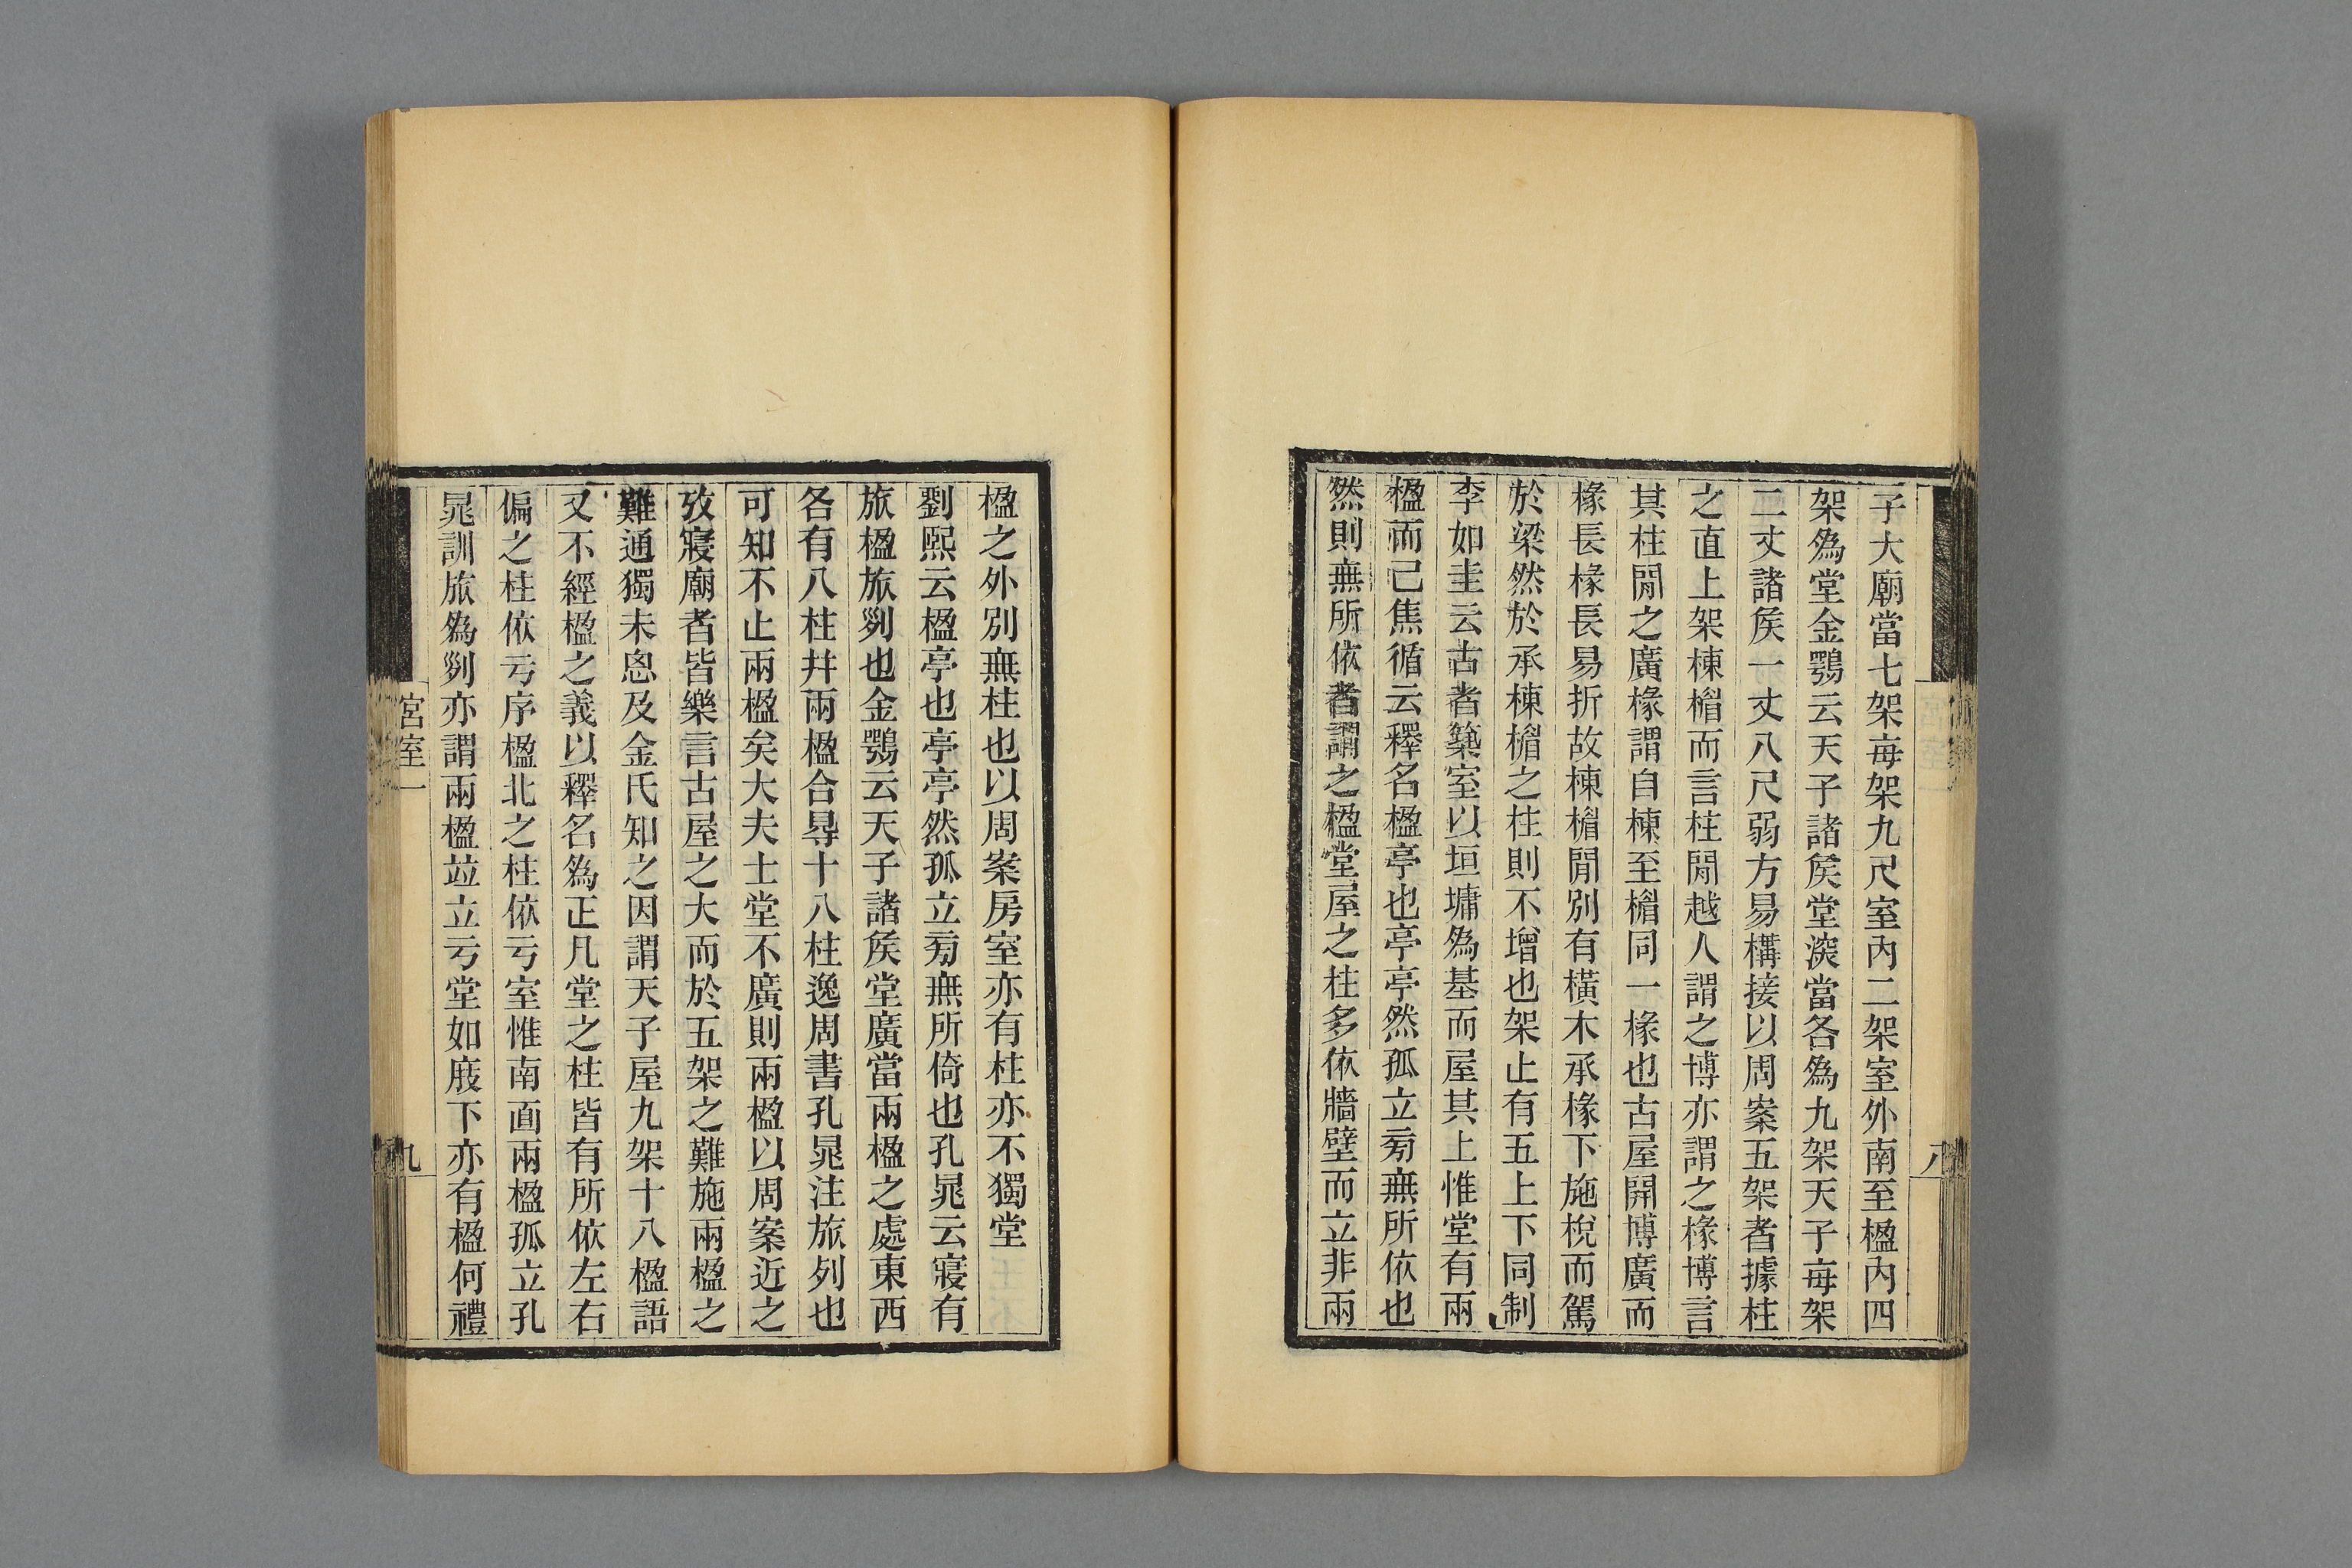 子大廟當七架每架九尺室內二架室外南至楹內四
架為堂金鶚云天子諸矦堂深當各為九架天子每架
二丈諸矦一丈八尺弱方易構接以周案五架者據柱
之直上架棟楣而言柱閒越人謂之博亦謂之椽博言
其柱閒之廣椽謂自棟至楣同一椽也古屋開博廣而
椽長椽長易折故棟楣閒別有橫木承椽下施棁而駕
於梁然於承棟楣之柱則不增也架止有五上下同制
李如圭云古者築室以垣墉為基而屋其上惟堂有兩
楹而已焦循云釋名楹亭也亭亭然孤立㫄無所依也
然則無所依者謂之楹堂屋之柱多依牆壁而立非兩
八
楹之外別無柱也以周案房室亦有柱亦不獨堂
劉熙云楹亭也亭亭然孤立㫄無所倚也孔晁云寢有
旅楹旅列也金鶚云天子諸矦堂廣當兩楹之處東西
各有八柱幷兩楹合㝵十八柱逸周書孔晁注旅列也
可知不止兩楹矣大夫士堂不廣則兩楹以周案近之
攷寢廟者皆樂言古屋之大而於五架之難施兩楹之
難通獨未恖及金氏知之因謂天子屋九架十八楹語
又不經楹之義以釋名為正凡堂之柱皆有所依左右
偏之柱依亏序楹北之柱依亏室惟南面兩楹孤立孔
晁訓旅為列亦謂兩楹竝立亏堂如庪下亦有楹何禮
宮室一
九